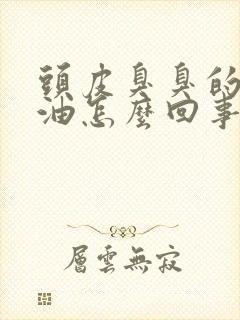 頭皮臭臭的
油怎麼回事
層雲無寂